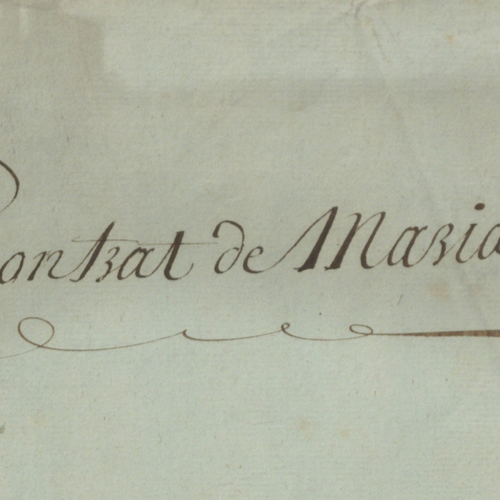 Contrat de Maria